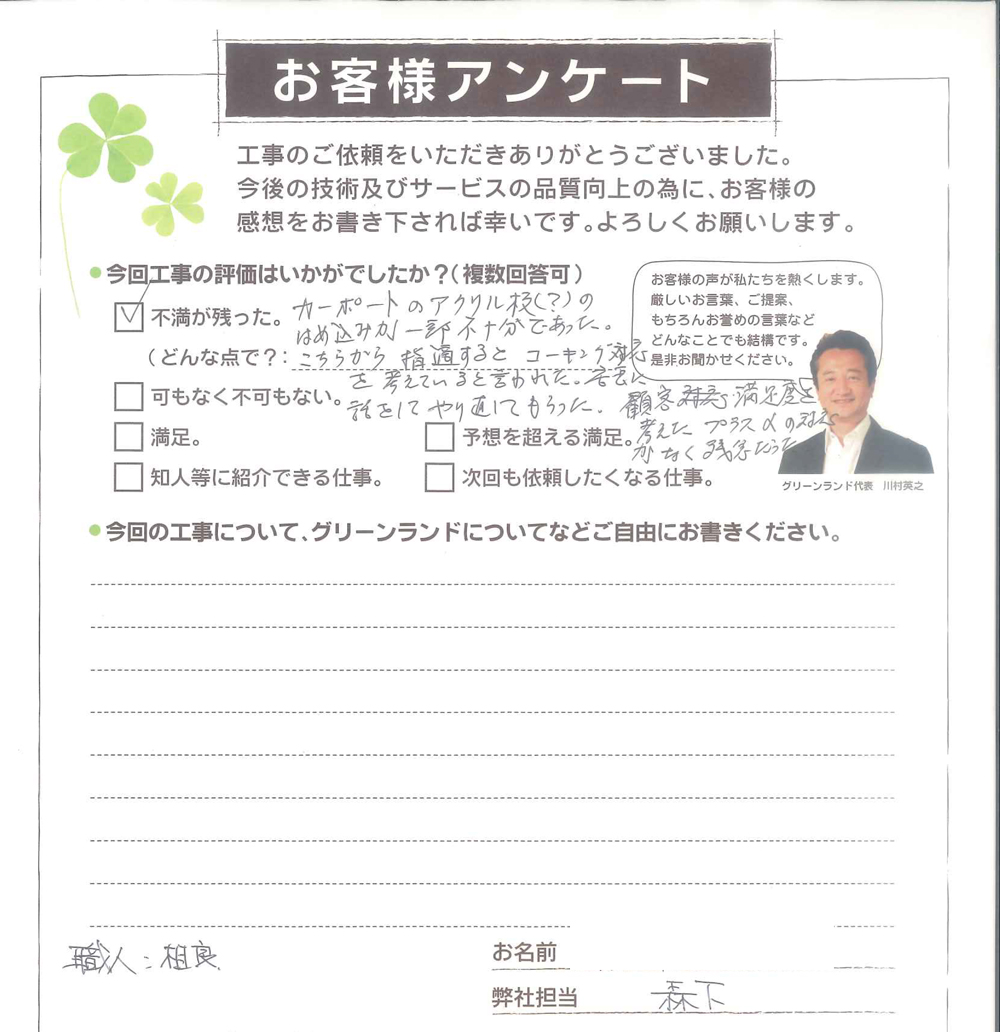 お客様アンケート
工事のご依頼をいただきありがとうございました。
今後の技術及びサービスの品質向上の為に、お客様の
感想をお書き下されば幸いです。よろしくお願いします。
今回工事の評価はいかがでしたか？（複数回答可）
お客様の声が私たちを熱くします。
厳しいお言葉、ご提案、
もちろんお誉めの言葉など
どんなことでも結構です。
是非お聞かせください。
不満が残った。
（どんな点で？：
カーポートのアクリル板(？)の
はめ込みが一部不十分であった。
こちらから指適すると コーキング対応
を考えていると言われた。
話をしてやり直してもらった。
顧客対応・満足度を
考えた プラスαの対応
がなく残念だった
可もなく不可もない。
満足。
予想を超える満足。
知人等に紹介できる仕事。
次回も依頼したくなる仕事。
グリーンランド代表 川村英之
今回の工事について、グリーンランドについてなどご自由にお書きください。
職人：相良
お名前
弊社担当 森下